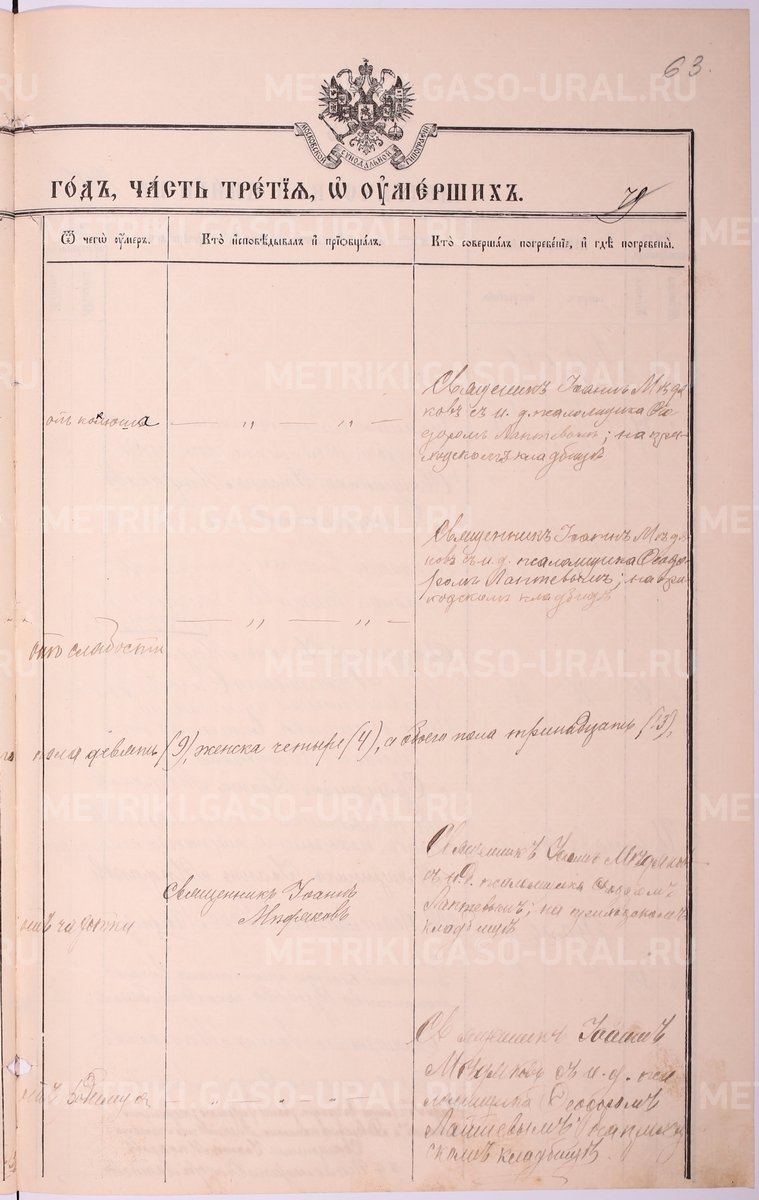 63.
МОСКОВСКОЙ СѴНОДАЛЬНОЙ ТИПОГРАФІИ
ГОДЪ, ЧАСТЬ ТРЕТІЯ, Ѡ ОУМЕРШИХЪ.
Ѿ чегѡ оумеръ.
Кто исповѣдывалъ и приѡбщалъ.
Кто совершалъ погребеніе, и гдѣ погребены.
отъ коклюша
— „ — „ —
Священникъ Іоаннъ Мѣдя
ковъ съ и. д. псаломщика Ѳео
доромъ Лаптевымъ; на при
ходскомъ кладбищѣ
отъ слабости
— „ — „ —
Священникъ Іоаннъ Мѣдя
ковъ съ и. д. псаломщика Ѳеодо
ромъ Лаптевымъ; на при
ходскомъ кладбищѣ
пола девять (9), женска четыре (4), а обоего пола тринадцать (13),
отъ чахотки
Священникъ Іоаннъ
Мѣдяковъ
Священникъ Іоаннъ Мѣдяковъ
съ и. д. псаломщика Ѳеодоромъ
Лаптевымъ; на приходскомъ
кладбищѣ
отъ
— „ — „ —
Священникъ Іоаннъ
Мѣдяковъ съ и. д. пса
ломщика Ѳеодоромъ
Лаптевымъ; на приход
скомъ кладбищѣ.
METRIKI.GASO-URAL.RU